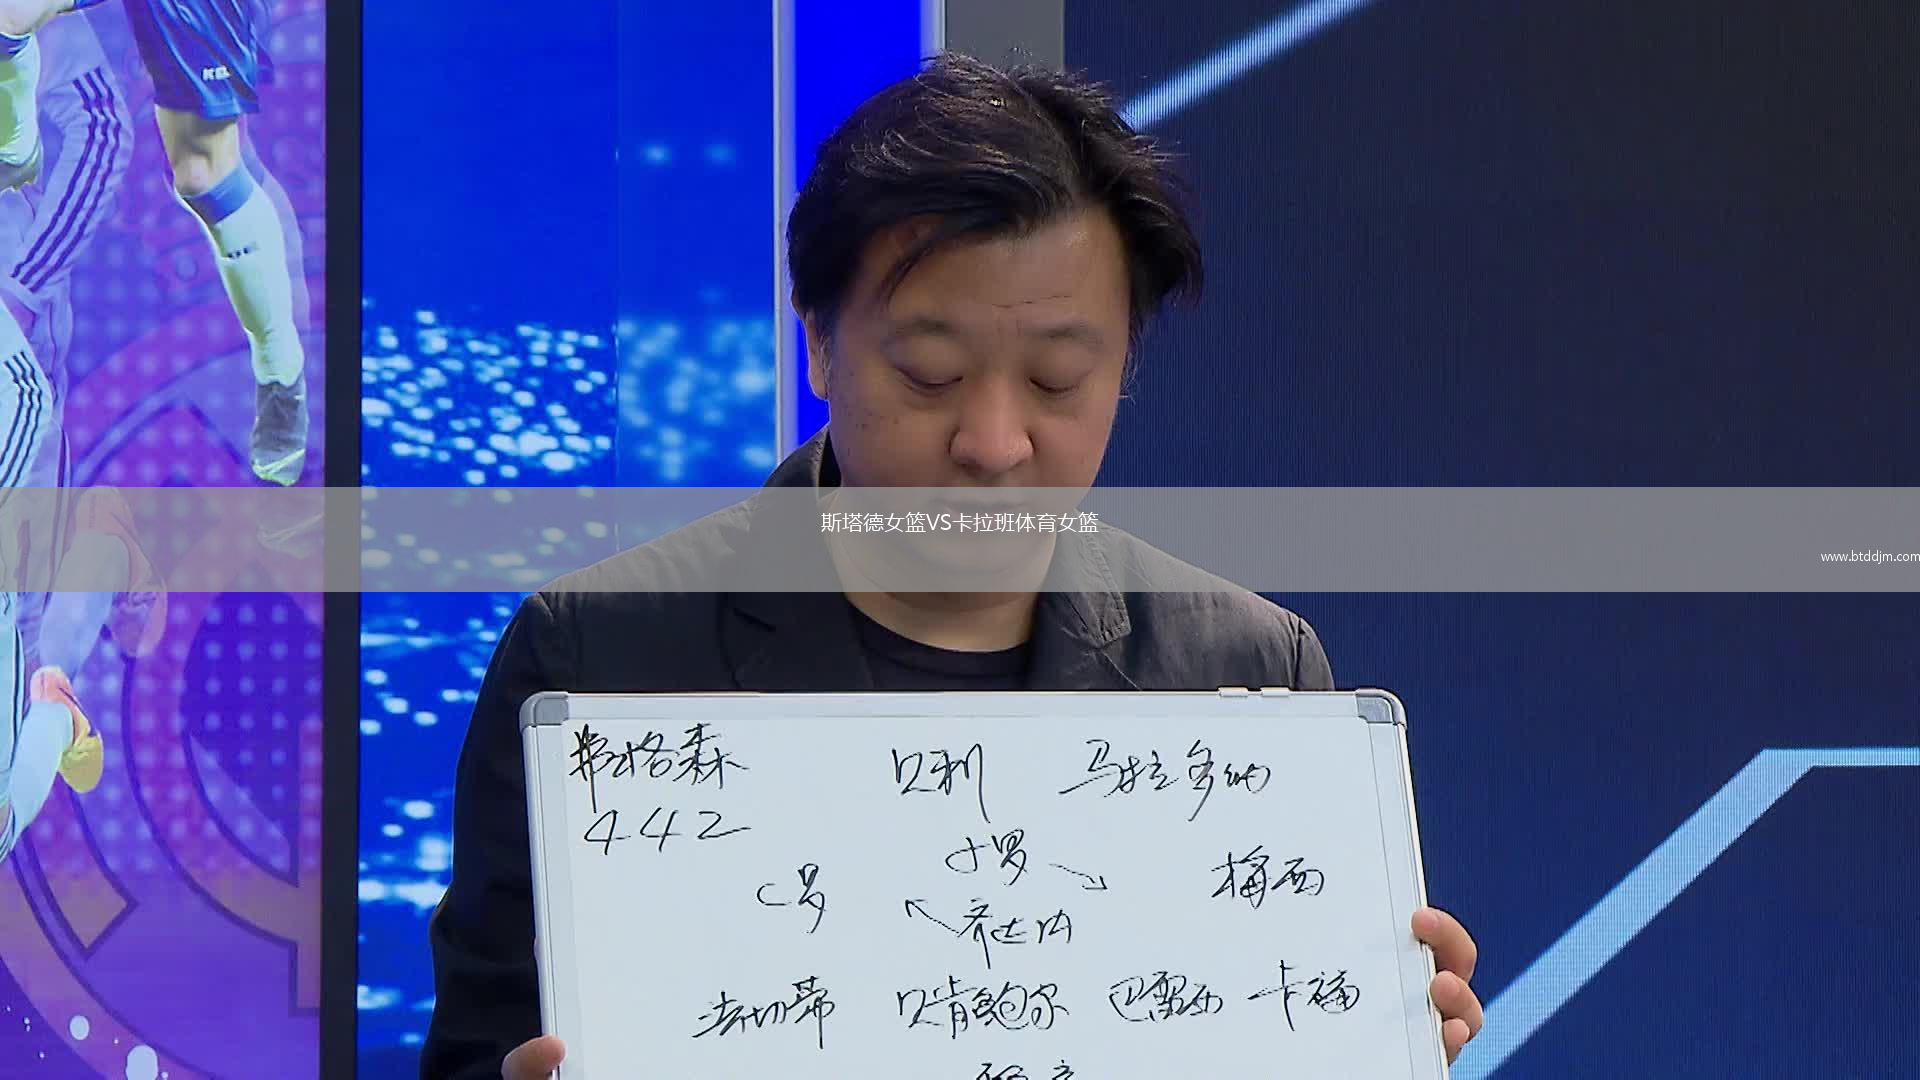 斯塔德女篮VS卡拉班体育女篮
www.btddjm.com
弗格森 贝利 马拉多纳
442
小罗
C罗 梅西
齐达内
法切蒂 贝肯鲍尔 巴雷西 卡福